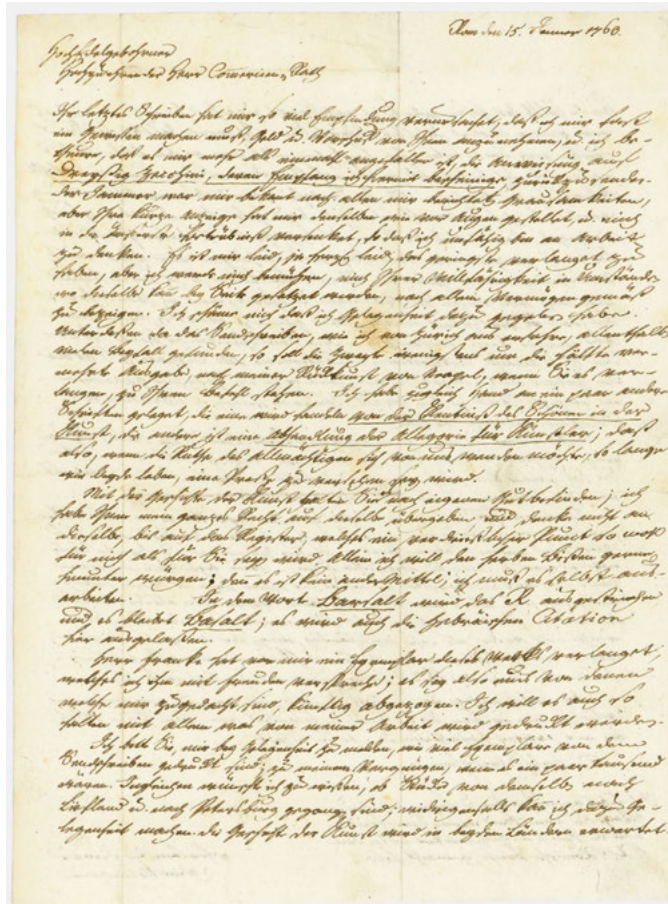 Rom den 15. Jenner 1763.
HochEdelgebohrner
Hochzuehrender Herr Comercien-Rath
Ihr letztes Schreiben hat mir so viel Empfindung verursachet, daß ich mir fast
ein Gewissen machen muß, Geld u. Vorschuß von Ihnen anzunehmen, u. ich be-
theure, daß es mir mehr als einmahl eingefallen ist, die Anweisung auf
Dreyßig Zecchini, deren Empfang ich hiermit bescheinige, zurück zu senden.
Der Jammer war mir bekant nach allen mir berichteten Grausamkeiten,
aber Ihre kurze Anzeige hat mir denselben wie vor Augen gestellet, u. mich
in die äußerste Betrübniß versenket, so daß ich unfähig bin an Arbeit
zu denken. Es ist mir leid, ja herzl. leid, das geringste verlanget zu
haben, aber ich werde mich bemühen, mich Ihrer Willfährigkeit in Umständen
wo dieselbe kan bey Seite gesetzet werden, nach allem Vermögen gemäß
zu bezeigen. Ich schäme mich daß ich Gelegenheit dazu gegeben habe.
Unterdessen da das Sendschreiben, wie ich von Zürich aus erfahre, allenthalb
vielen Beyfall gefunden, so soll die zweyte wenigstens um die Hälfte ver-
mehrte Ausgabe, nach meiner Rückkunft von Neapel, wenn Sie es ver-
langen, zu Ihrem Befehl stehen. Ich habe zugleich Hand an ein paar andere
Schriften geleget, die eine wird handeln von der Kentniß des Schönen in der
Kunst, die andere ist eine Abhandlung der Allegorie für Künstler; daß
also, wenn die Ruthe des Allmächtigen sich von uns wenden möchte, so lange
wir beyde leben, eine Presse zu versehen seyn wird.
Mit der Geschichte der Kunst halten Sie nach eigenem Gutbefinden; ich
habe Ihnen mein ganzes Recht auf dieselbe übergeben und denke nicht an
dieselbe, bis auf den Register, welches ein verdrießlicher Punct so wohl
für mich als für Sie seyn wird. Allein ich will den herben Bissen gerne
hinunter würgen; denn es ist kein ander Mittel, ich muß es selbst aus-
arbeiten. In dem Wort Barsalt wird das R ausgestrichen
und es bleibet Basalt; es wird auch die Hebräischen Citation
hier ausgelassen.
Herr Francke hat von mir ein Exemplar dieses Werks verlanget,
welches ich ihm mit Freuden verspreche; es sey also auch von denen
welche mir zugedacht sind, künftig abgezogen. Ich will es auch so
halten mit allem was von meiner Arbeit wird gedruckt werden.
Ich bitte Sie, mir bey Gelegenheit zu melden, wie viel Exemplare von dem
Sendschreiben gedruckt sind; zu meinem Vergnügen, wenn es ein paar tausend
wären. Imgleichen wünscht ich zu wissen, ob Stücke von demselben nach
Liefland u. nach Petersburg gegangen sind; widrigenfalls kan ich dazu Ge-
legenheit machen. Die Geschichte der Kunst wird in beyden Ländern erwartet.